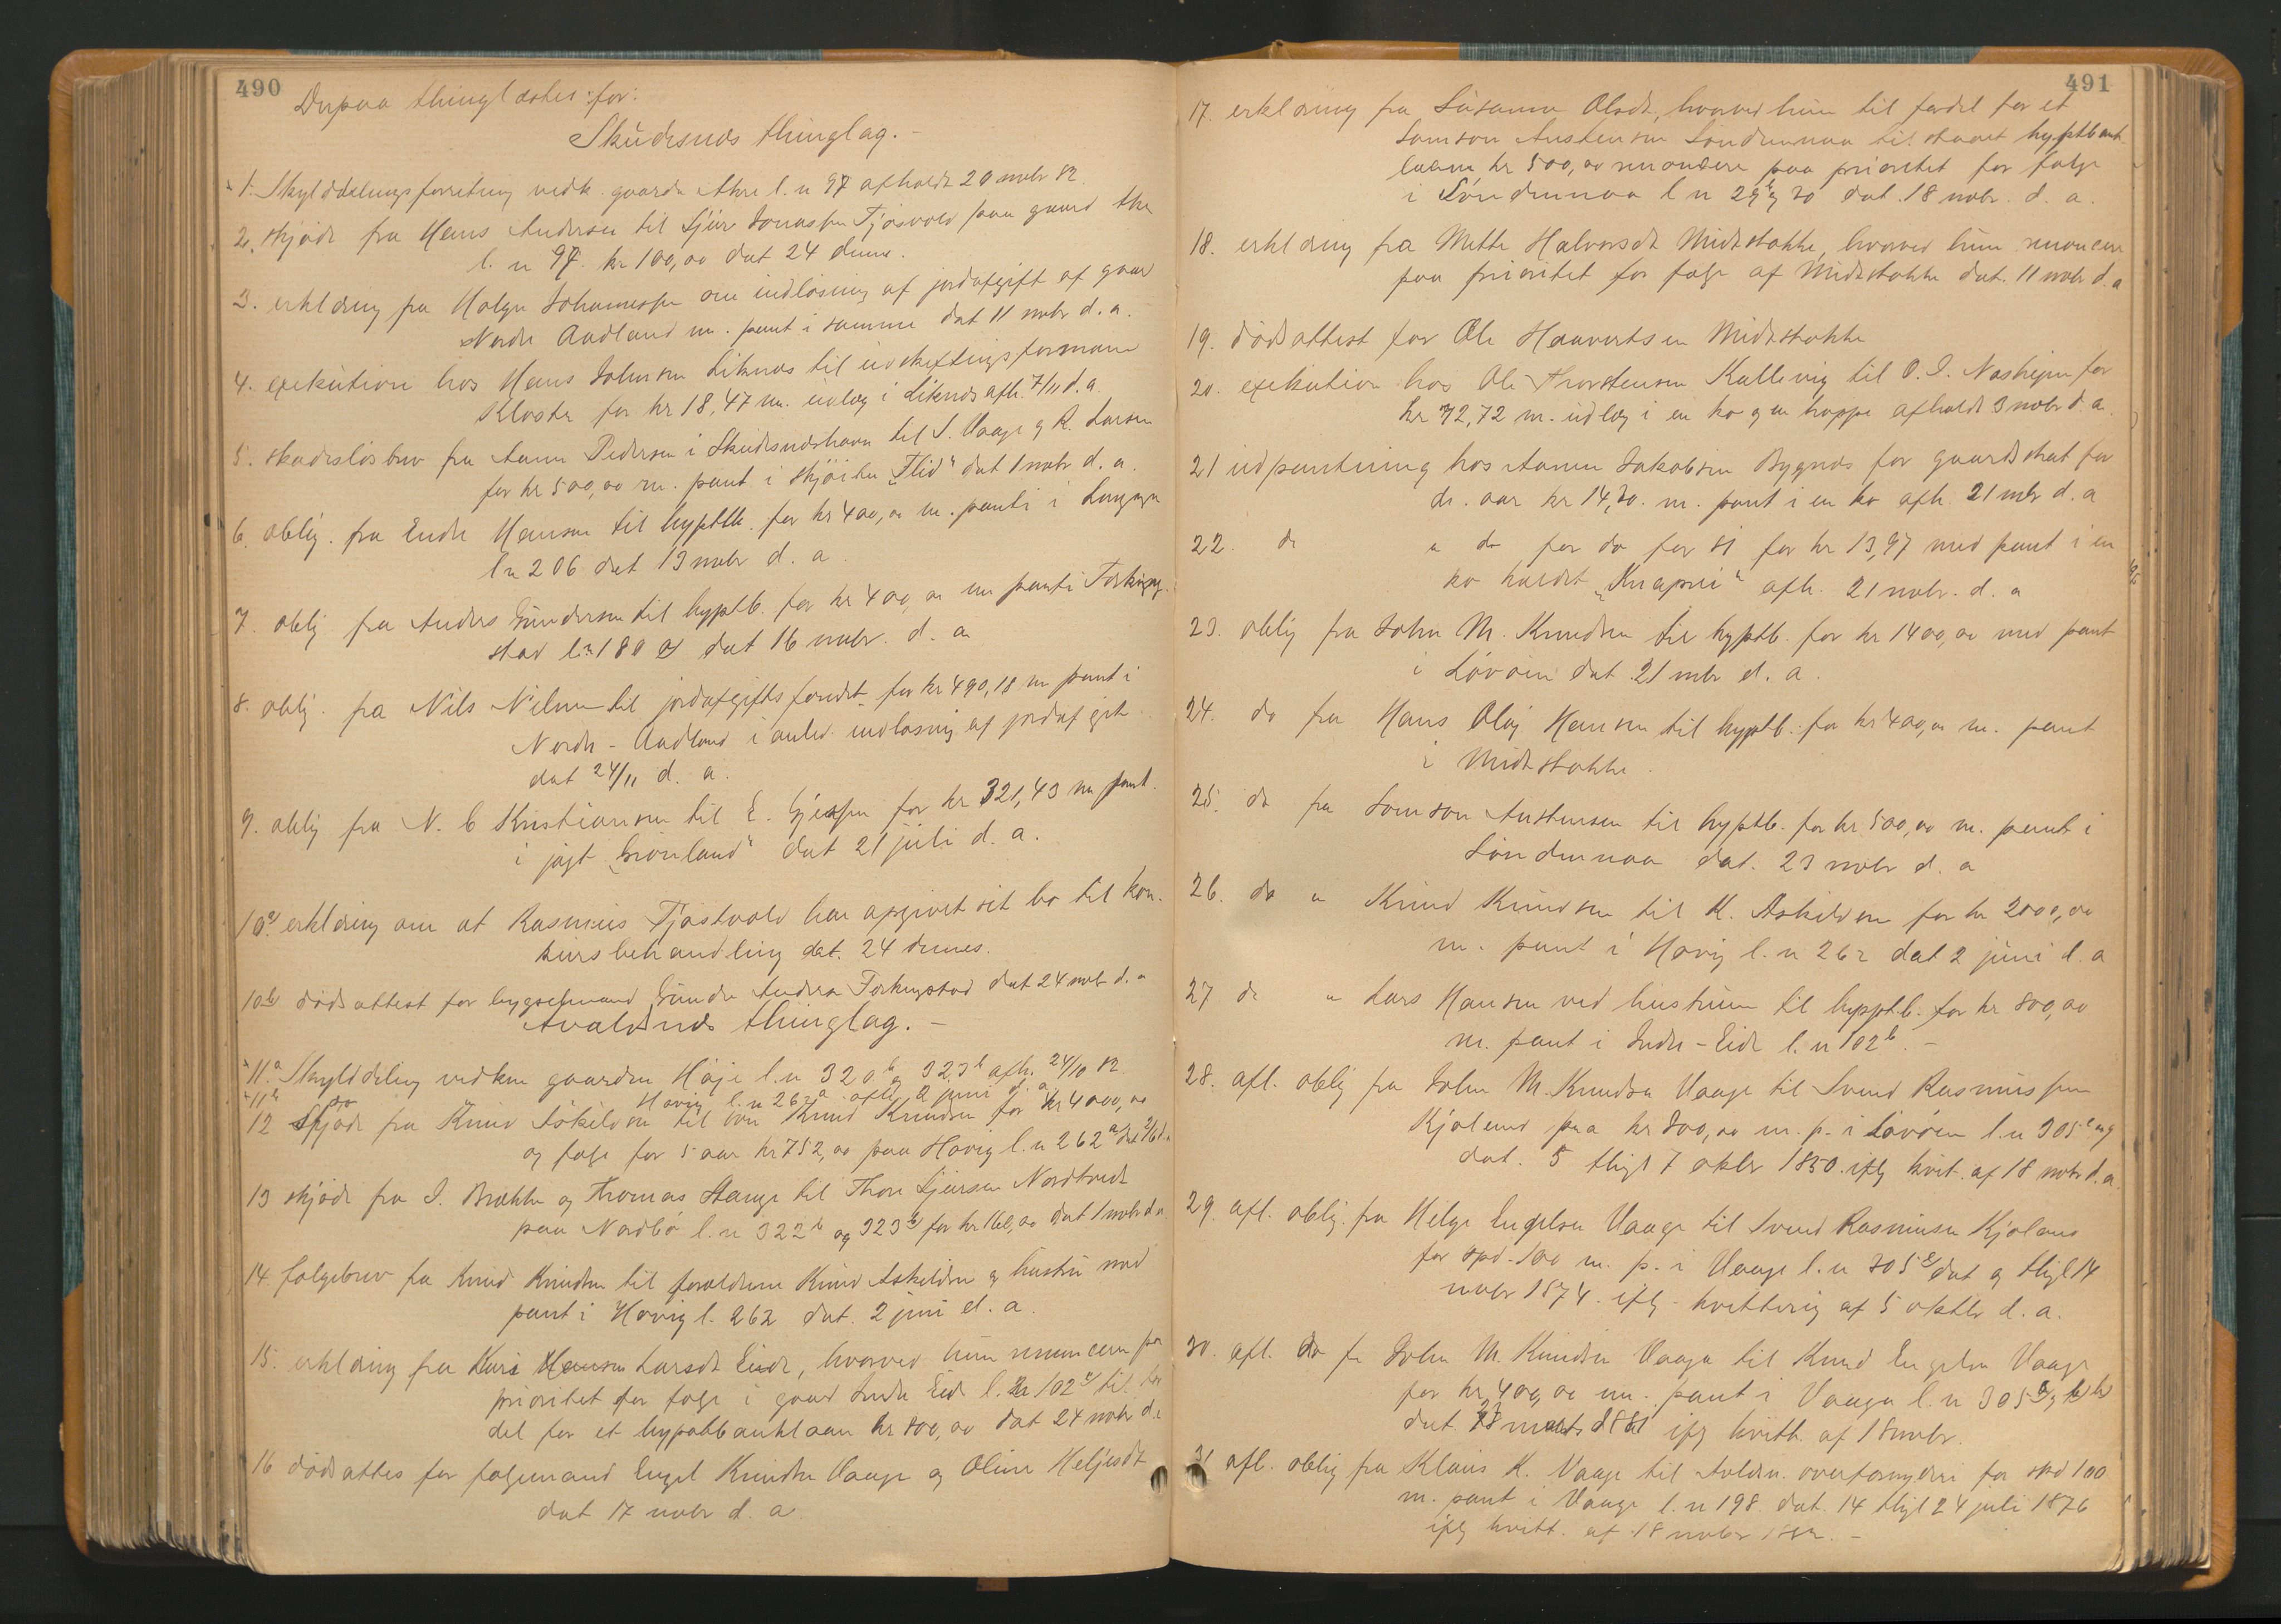 490
Derpaa thinglæstes for:
Skudesnæs thinglag. -
1. Skylddelingsforretning vedk. gaarden Akre l. n 97 afholdt 20 novbr 82.
2. skjøde fra Hans Andersen til Sjur Jonassen Tjøsvold paa gaard Akre
l. n 97. kr 100,00 dat 24 dennes.
3. erklæring fra Holger Johannessen om indløsning af jordafgift af gaard
Nordre Aadland m. pant i samme dat 11 novbr d. a.
4. exekution hos Hans Johnsen Liknæs til udskiftningsformand
Kloster for kr 18,47 m. udlæg i Liknæs afh. 7/11 d. a.
5. skadesløsbrev fra Aamn Pedersen i Skudesnæshavn til S. Vaage og R. Larsen
for kr 500,00 m. pant i skjøiten "Flid" dat 1 novbr d. a.
6. oblig. fra Endre Hansen til hyptb. for kr 400,00 m. pant i
l n 206 dat 13 novbr d. a
7. oblig fra Anders Gundersen til hyptb. for kr 400,00 m pant i Ferkingstad
stad l n 180 dat 16 novbr. d. a
8. oblig. fra Nils Nilsen til jordafgiftsfondet for kr 490,18 m pant i
Nordre - Aadland i anled. indløsning af jordafgift
dat 24/11 d. a.
9. oblig fra N. C Kristiansen til E. for kr 321,43 m pant
i jagt "Grønland" dat 21 juli d. a.
10a erklæring om at Rasmus Tjøstvold har opgivet sit bo til kon-
kursbehandling dat. 24 dennes.
10b dødsattest for bygselmand Gunder Anders. Ferkingstad dat 24 novbr d. a
Avaldsnæs thinglag. -
11a Skylddeling vedkom gaarden Høje l. n 320b og 323b afh. 24/10 82.
11b do Hovig l. n 262a afh. 2 juni d. a
12 skjøde fra Knud Askildsen til søn Knud Knudsen for kr 4000,00
og følge for 5 aar kr 752,00 paa Hovig l. n 262a dat 2/6 d. a
13 skjøde fra I. Brække og Thomas Stange til Thore Sjursen Nordtveit
paa Nordbø l. n 322b og 323b for kr 160,00 dat 1 novbr d. a
14 følgebrev fra Knud Knudsen til forældrene Knud Askildsen og hustru med
pant i Hovig l. 262 dat. 2 juni d. a.
15. erklæring fra Kari Larsdt Eide, hvorved hun renuncerer paa
prioritet for følge i gaard Indre Eide l. n 102 til for-
del for et hypothbanklaan kr 800,00 dat 24 novbr d. a
16 dødsattes for følgemand Engel Knudsen Vaage og Oline Heljesdt
dat 17 novbr d. a.
491
17. erklæring fra Susanna Olsdt., hvorved hun til fordel for et
Samson Austensen Søndennaa til staaet hyptbank
laan kr 500,00 renuncere paa prioritet for følge
i Søndennaa l n 29b og 30 dat. 18 novbr. d. a.
18. erklæring fra Mette Halvorsdt Midtstokke, hvorved hun renuncere
paa prioritet for følge af Midtstokke dat. 11 novbr d. a
19. dødsattest for Ole Haavortsen Midtstokke
20. exekution hos Ole Thorstensen Kallevig til O. I. Næshejm for
kr 72,72 m. udlæg i en ko og en hoppe afholdt 3 novbr d. a.
21 udpantning hos Aamn Jakobsen Bygnæs for gaardskat for
d. aar kr 14,20. m. pant i en ko afh. 21 nvbr d. a
22. do " do for do for 81 for kr 13,97 med pant i en
ko kaldet "Knaprei" afh. 21 novbr. d. a
23. oblig fra John M. Knudsen til hyptb. for kr 1400,00 med pant
i Løvøen dat. 21 nvbr d. a.
24. do fra Hans Olaj Hansen til hyptb. for kr 400,00 m. pant
i Midtstokke.
25. do fra Samson Austensen til hyptb. for kr 500,00 m. pant i
Søndennaa dat. 23 novbr d. a
26. do " Knud Knudsen til K. Askildsen for kr 2000,00
m. pant i Hovig l. n 262 dat 2 juni d. a
27 do " Lars Hansen ved hustrun til hypptb. for kr 800,00
m. pant i Indre - Eide l. n 102b. -
28. afl. oblig fra John M. Knudsen Vaage til Svend Rasmussen
Kjøland paa kr 800,00 m. p. i Løvøen l. n 305
dat. 5 thgl 7 oktbr 1880. iflg kvit. af 18 novbr d. a.
29. afl. oblig. fra Helge Engelsen Vaage til Svend Rasmusen Kjøland
for spd. 100 m. p. i Vaage l. n 305 dat og thgl 14
novbr 1874. iflg. kvittering af 5 oktbr d. a.
30. afl. do fr John M. Knudsen Vaage til Knud Engelsen Vaage
for kr 400,00 m. pant i Vaage l. n 305
dat. marts 1881 iflg kvitt. af 18 novbr.
31 afl. oblig fra Klaus K. Vaage til Avldsn. overformyderi for spd 100
m. pant i Vaage l. n 198. dat. 14 thgl 24 juli 1876
iflg kvitt. af 18 novbr 1882. -